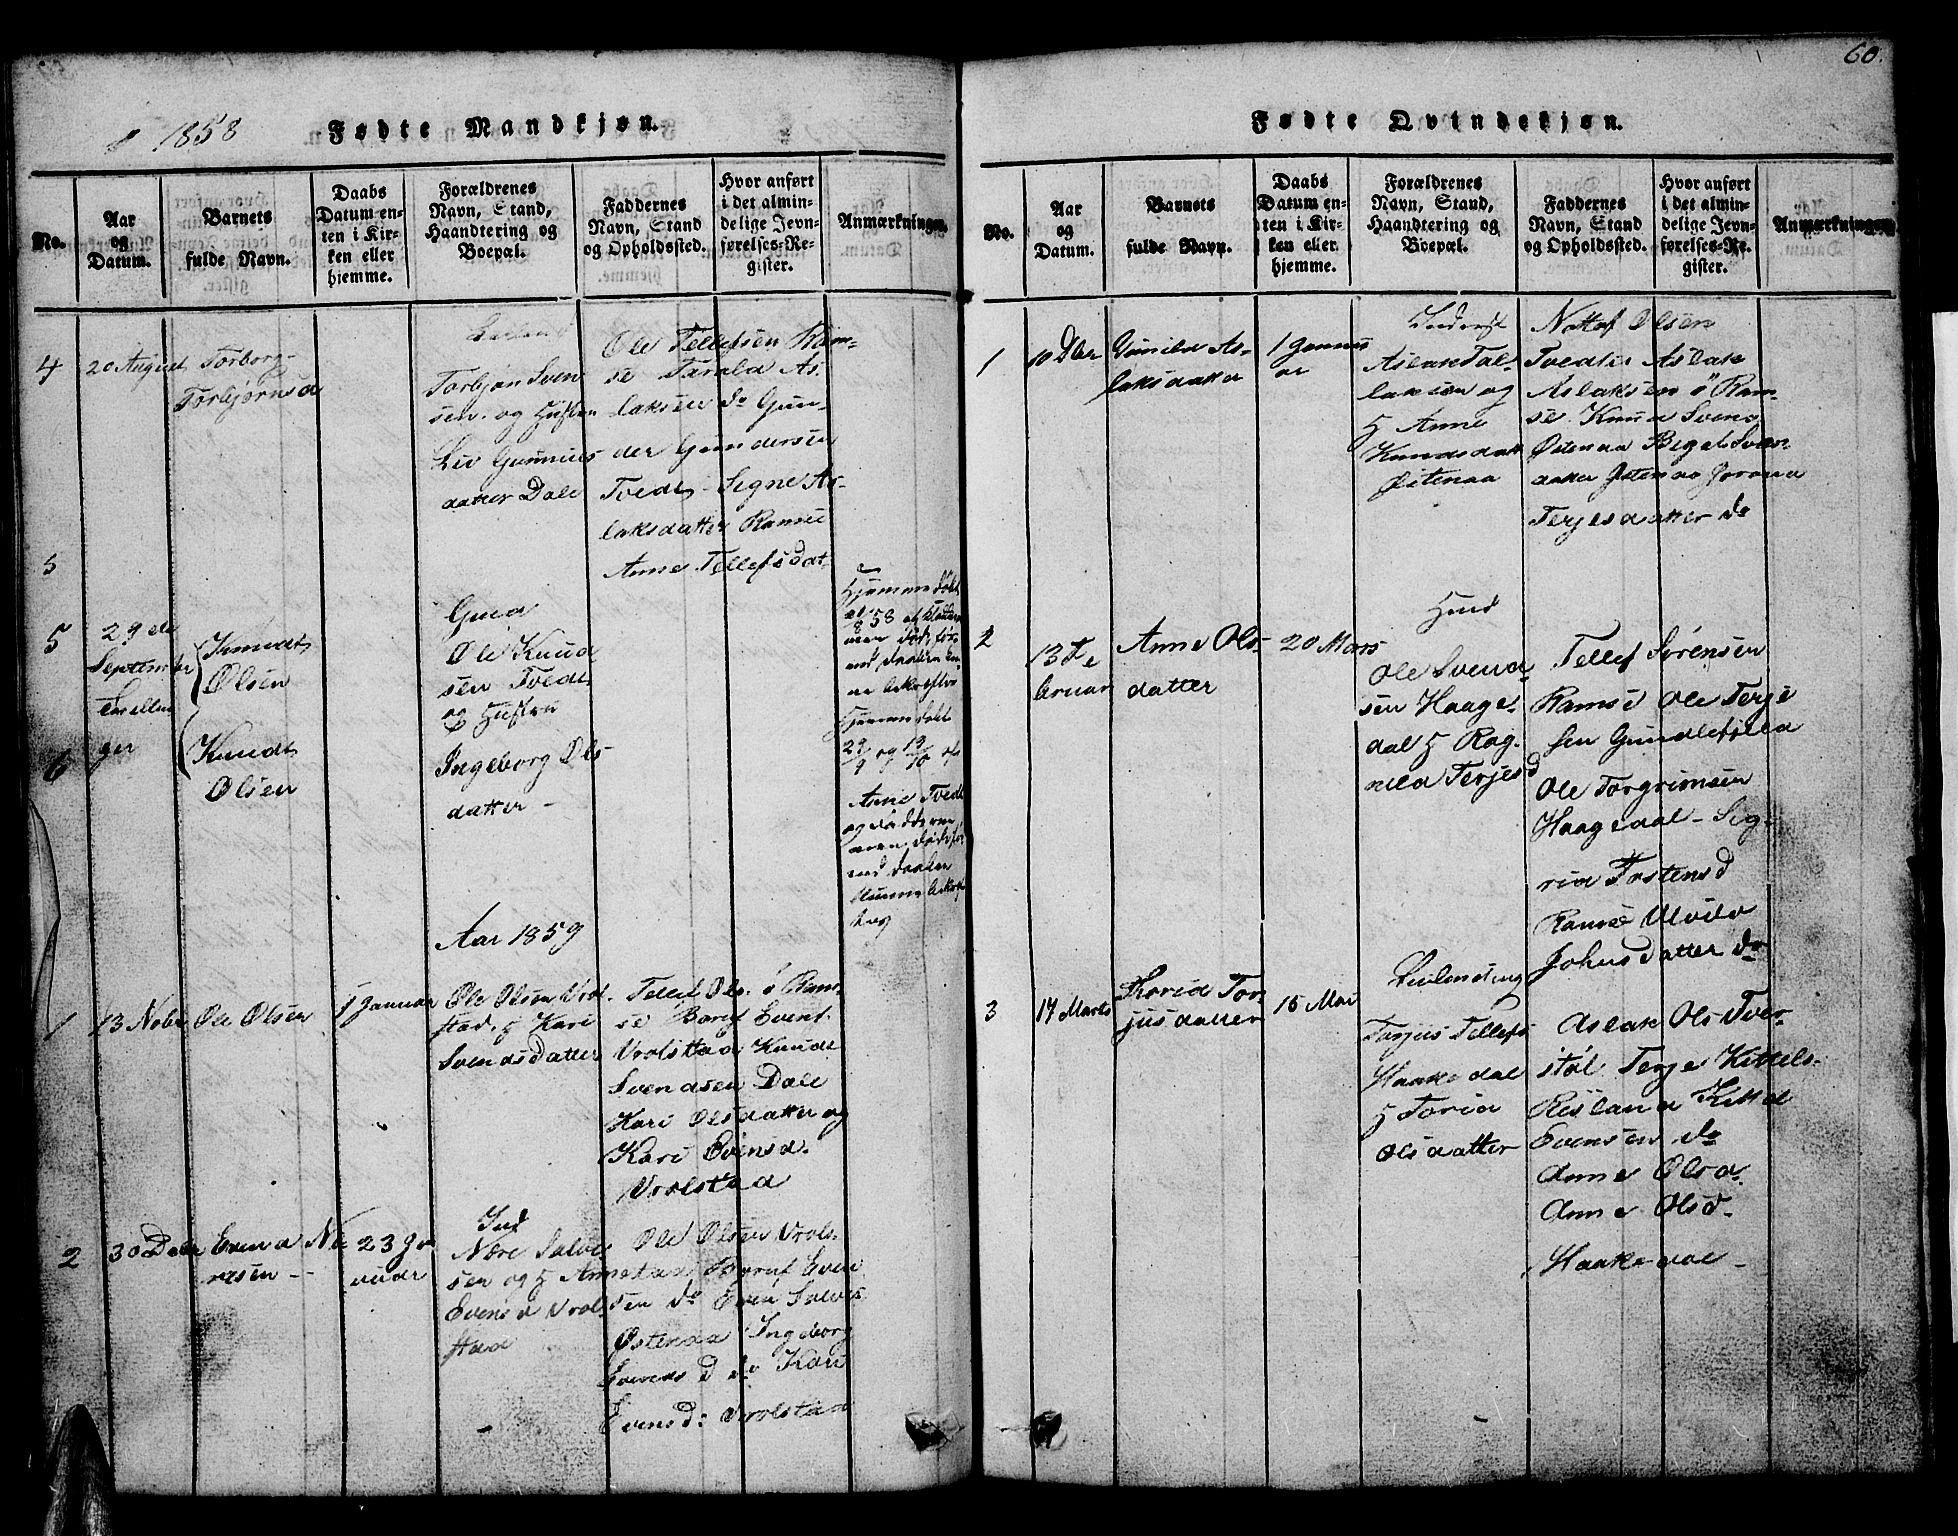 60.
1858
Fødte Mandkjøn.
No.
Aar
og
Datum.
Barnets
fulde Navn.
Daabs
Datum en-
ten i Kir-
ken eller
hjemme.
Forældrenes
Navn, Stand,
Haandtering og
Boepæl.
Faddernes
Navn, Stand
og Opholdssted.
Hvor anført
i det almin-
delige Jevn-
førelses-Re-
gister.
Anmærkninger.
4
20 August
Torborg
Torbjørnsd
Torbjøn Sven
sen og Hustru
Liv Gunnuls
datter Dale
Ole Tellefsen Ram-
se Tarald As-
laksen do Gun-
der Gundersen
Tvedt - Segne As-
laksdatter Ramse
Anne Tellefsdat-
5
5
29de
September
Tvillin
ger
Knudt
Olsen
6
Knudt
Olsen
Gaard
Ole Knud
sen Tvedt
og Hustru
Ingeborg Ols
datter -
Hjemmedøbt
29/9 og 19/10 af
Anne Tvedt
Aar 1859
1
13 Nobr
Ole Olsen
1 Januar
Ole Olsen Vrol
stad. H Kari
Svendsdatter
Tellef Ols. ö Ram-
se Boruf Event
Vrolstad Knudt
Svendsen Dale
Kari Olsdatter og
Kari Evensd.
Vrolstad
2
30 Debr
Evend Ne
resen -
23 Ja
nuar
Ind
Nære Salves
sen og H Anne
Evensd Vrol
stad
Ole Olsen Vrol-
stad Boruf Even
sen do Even Salves
Østenaa Ingeborg
Svends D do Kari
Evensd: Vrolstad
Fødte Qvindekjøn.
No.
Aar
og
Datum.
Barnets
fulde Navn.
Daabs
Datum en-
ten i Kir-
ken eller
hjemme.
Forældrenes
Navn, Stand,
Haandtering og
Boepæl.
Faddernes
Navn, Stand
og Opholdssted.
Hvor anført
i det almin-
delige Jevn-
førelses-Re-
gister.
Anmærkninger.
1
10 Dbr
Gunild As-
laksdatter
1 Janu
ar
Inderst
Aslak Tal-
laksen og
H Anne
Knudsdatt
Østenaa
Nottof Olsen
Tvedt Aslak
Aslaksen ö Ram-
se. Knud Svend
Østenaa Birgit Sven-
datter Østenaa Joraand
Terjesdatter do
2
13 Fe
bruar
Anne Ols-
datter
20 Mars
Huus
Ole Svend
sen Haage-
dal H Rag-
nild Terjesd
Tellef Sørensen
Ramse Ole Terje
sen Gundlefjeld
Ole Torgrimsen
Haagedal - Sig-
rid Tostensd
Ramse Alvilo
Johnsdatter do
3
17 Marts
Torid Tor-
jusdatter
15 Mai
Leilending
Torjus Tellefs
Haakedal
H Torid
Olsdatter
Aslak Ols Tver-
støl Terje Kittels-
Risland Kittel
Evensen do
Anne Olsd.
Anne Olsd.
Haakedal -